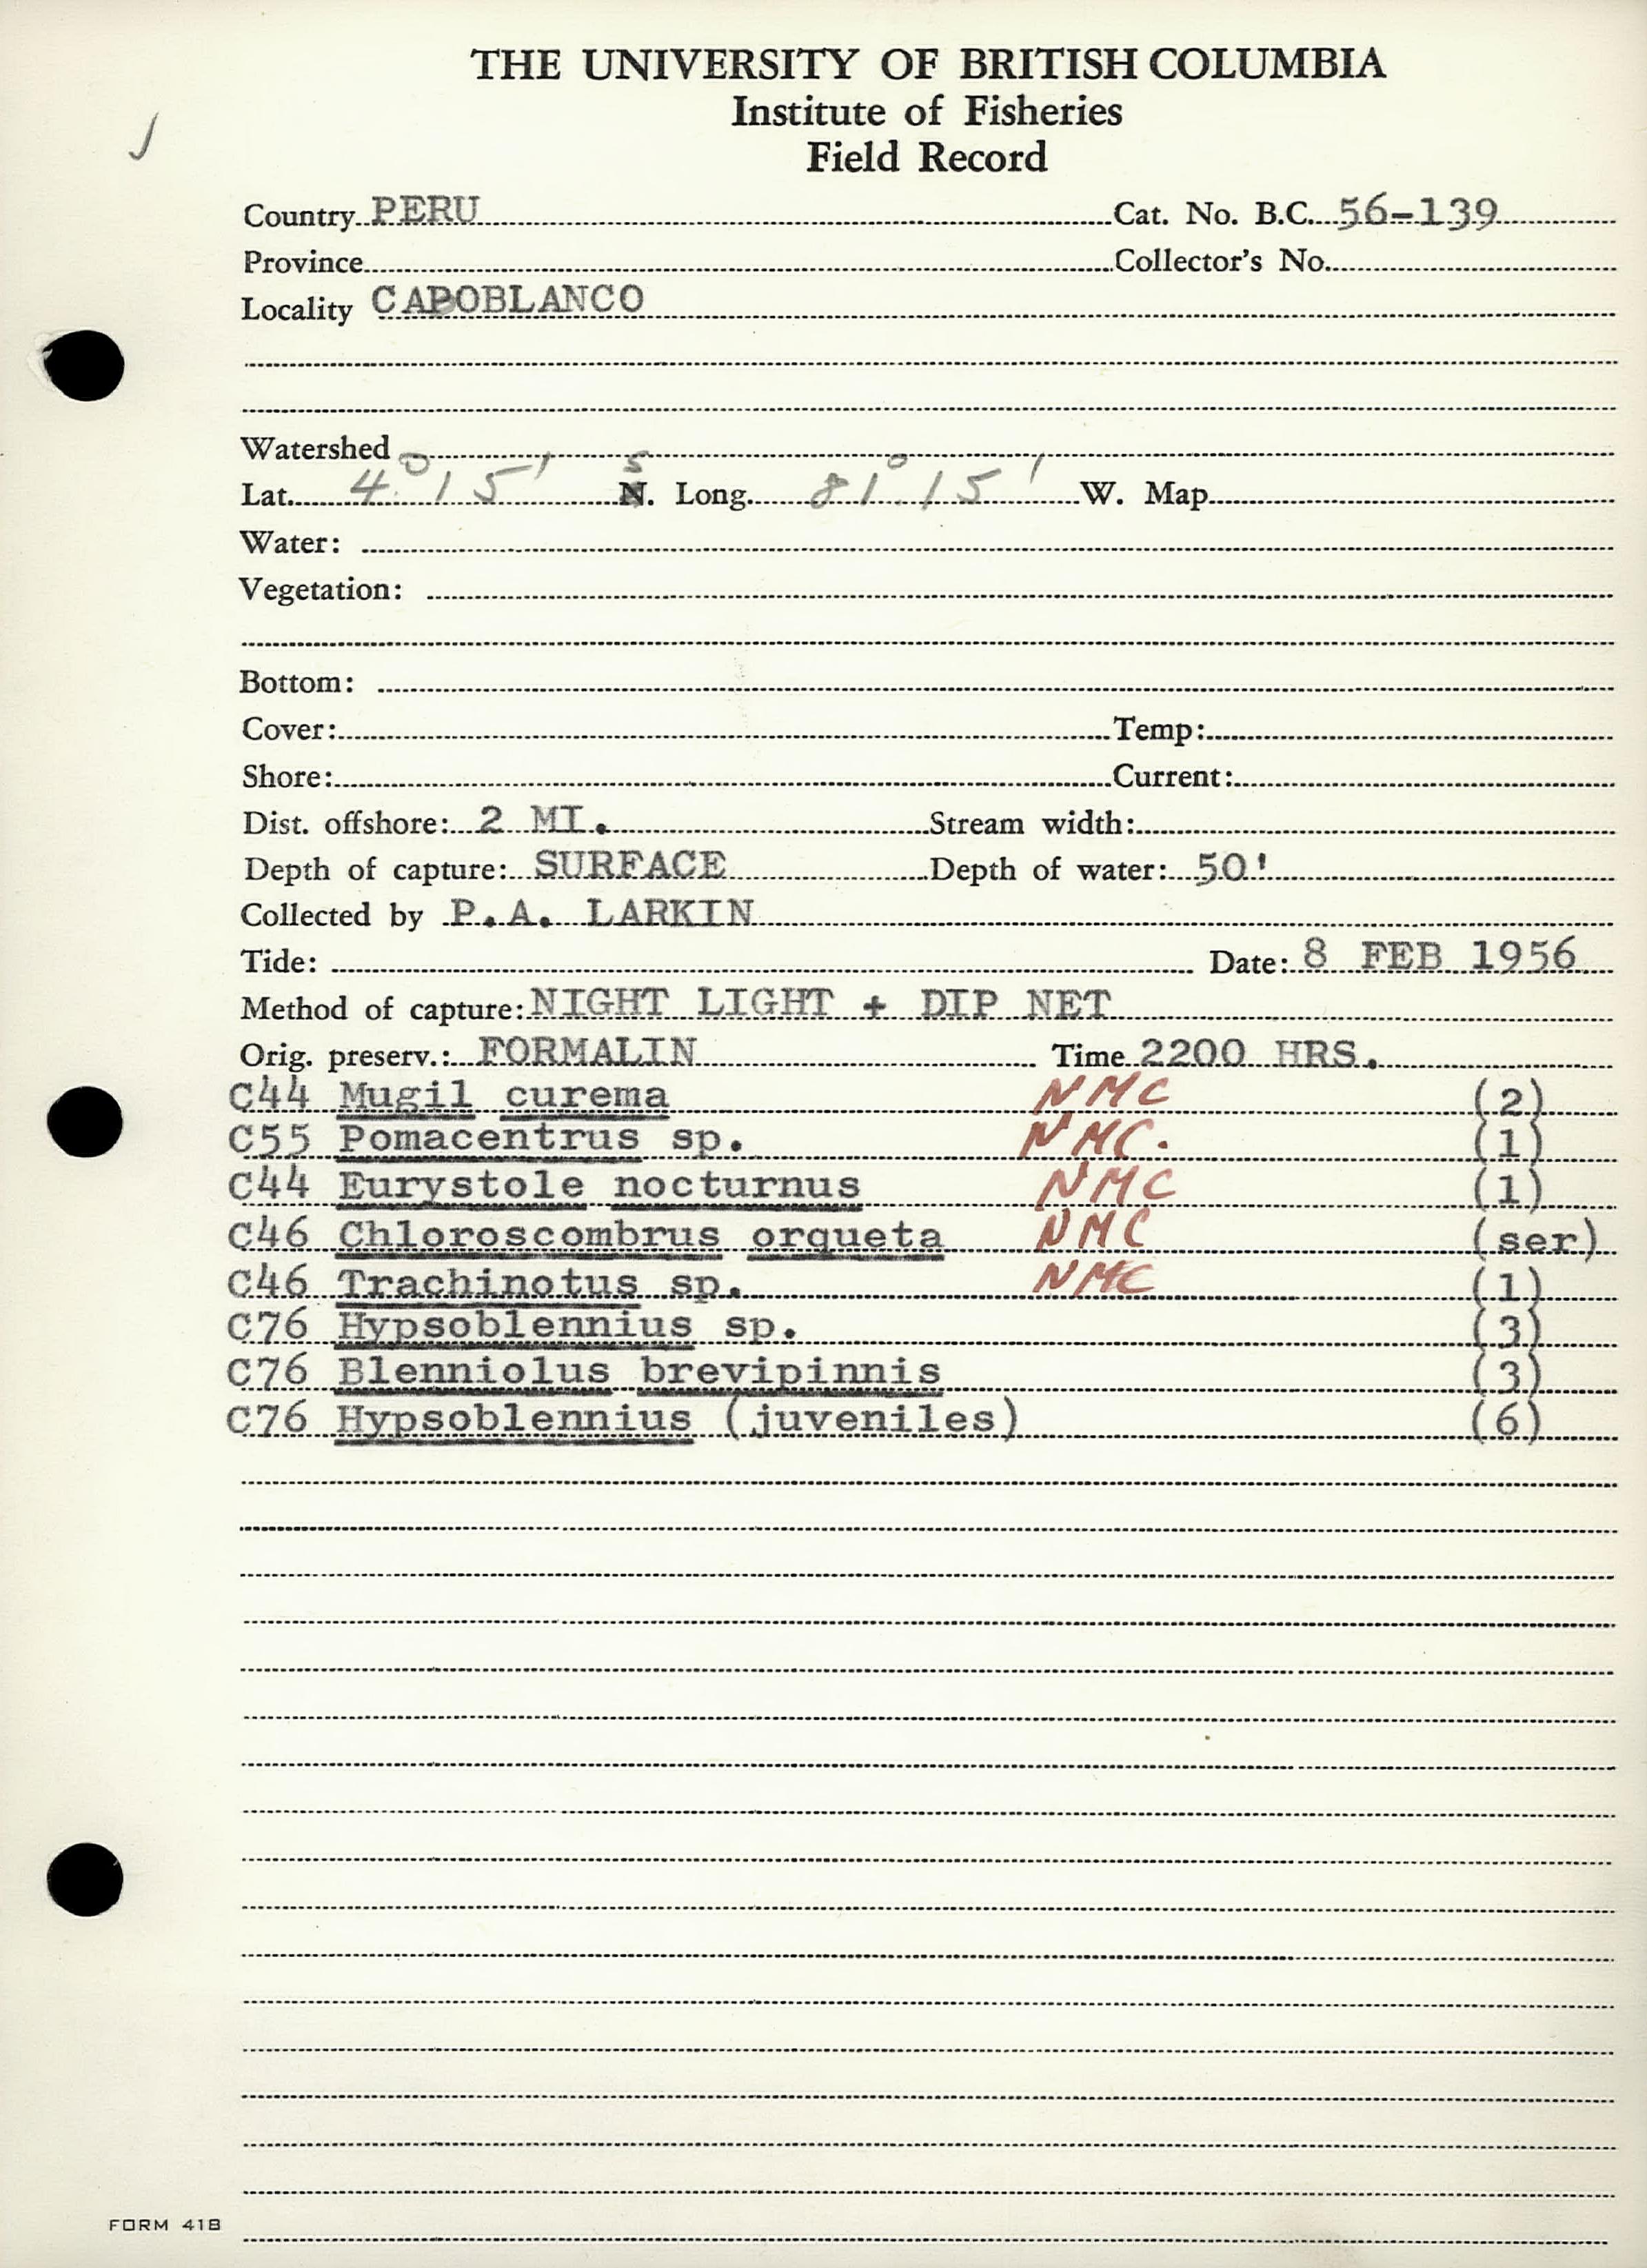 THE UNIVERSITY OF BRITISH COLUMBIA
Institute of Fisheries
Field Record
Country PERU Cat. No. B.C. 56-139
Province Collector's No.
Locality CAPOBLANCO
Watershed
Lat. 4° 15' S N. Long. 81° 15' W. Map
Water:
Vegetation:
Bottom:
Cover: Temp:
Shore: Current:
Dist. offshore: 2 MI. Stream width:
Depth of capture: SURFACE Depth of water: 50'
Collected by P.A. LARKIN
Tide: Date: 8 FEB 1956
Method of capture: NIGHT LIGHT + DIP NET
Orig. preserv.: FORMALIN Time 2200 HRS.
C44 Mugil curema NMC (2)
C55 Pomacentrus sp. NMC. (1)
C44 Eurystole nocturnus NMC (1)
C46 Chloroscombrus orqueta NMC (ser)
C46 Trachinotus sp. NMC (1)
C76 Hypsoblennius sp. (3)
C76 Blenniolus brevipinnis (3)
C76 Hypsoblennius (juveniles) (6)
FORM 41B